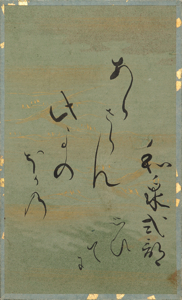 和泉式部
あらさらん
此よの
ほかの